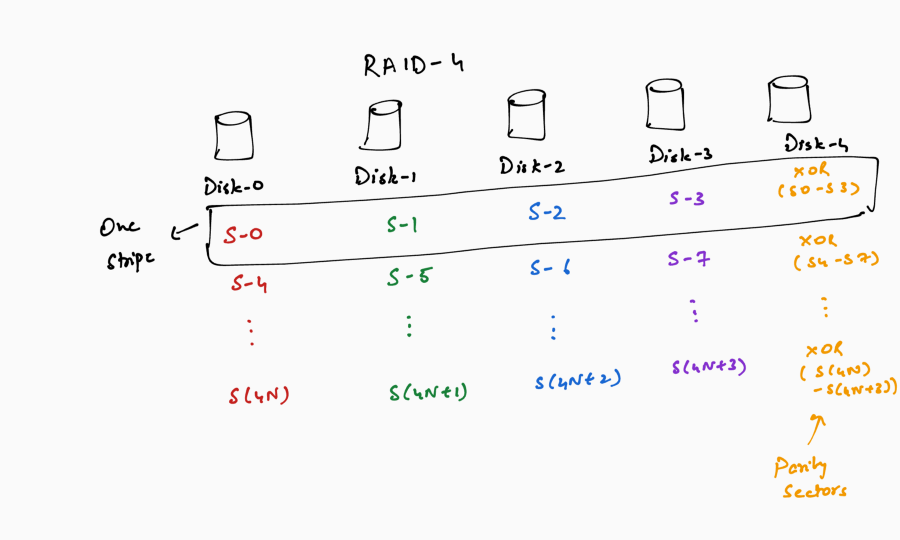 RAID-4
Disk-0 Disk-1 Disk-2 Disk-3 Disk-4
One
stripe
S-0 S-1 S-2 S-3 XOR
(S0-S3)
S-4 S-5 S-6 S-7 XOR
(S4-S7)
⋮ ⋮ ⋮ ⋮ ⋮
S(4N) S(4N+1) S(4N+2) S(4N+3) XOR
(S(4N)
-S(4N+3))
Parity
Sectors